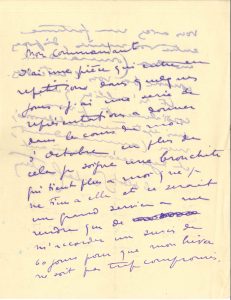 Mon commandant
J'ai une pièce qui entre en
répétitions dans quelques
jours, j'ai une série de
représentations à donner
dans le courant du mois
d'octobre, en plus de
cela je soigne une bronchite
qui tient plus à moi que je
ne tiens à elle et ce serait
un grand service à me
rendre que de
m'accorder un sursis de
60 jours pour que mon hiver
ne soit pas trop compromis.